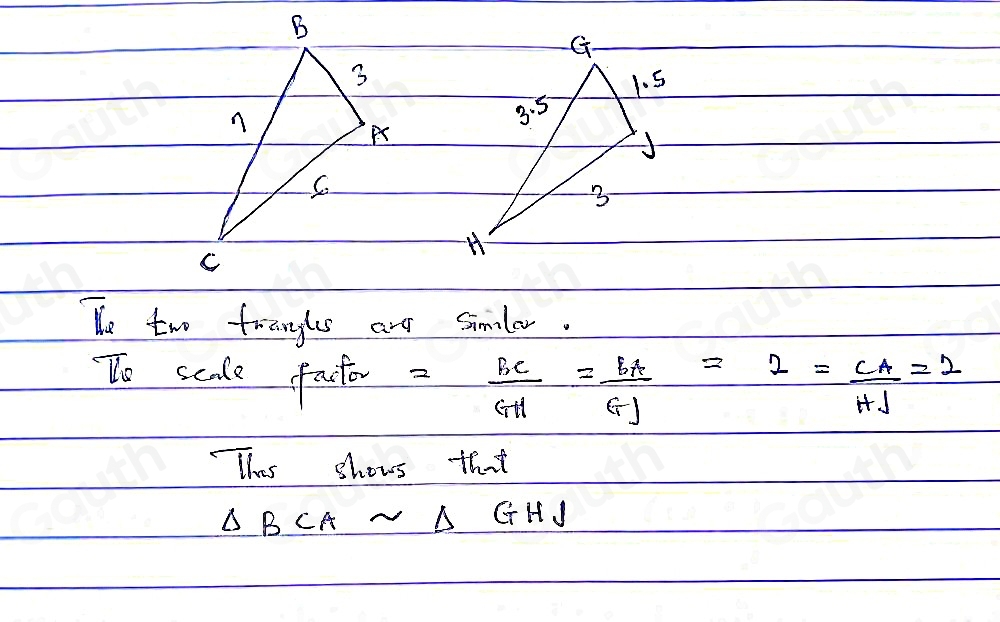 B
G
3
1.5
7
3.5
A
J
6
3
C
H
The two triangles are similar.
The scale factor = BC/GH = BA/GJ = 2 = CA/HJ = 2
This shows that
Δ BCA ~ Δ GHJ
Gauth